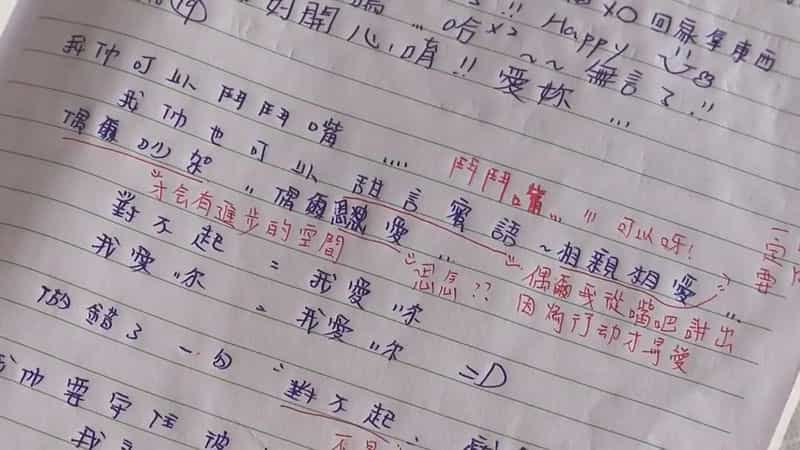 XO回家拿東西
哈xx !! Happy
好開心唷!! 愛妳 ~~ 無言了!!
我們可以鬥鬥嘴....
我們也可以甜言蜜語~相親相愛...
鬥鬥嘴... 可以呀!
一定要
偶爾吵架 偶爾 愛...
才會有進步的空間
恩恩?? 偶爾我從嘴吧說出
因為行动才是愛
對不起 = 我愛你
我愛你 = 我愛你 =D
做錯了一句 對不起
我們要守住彼
我